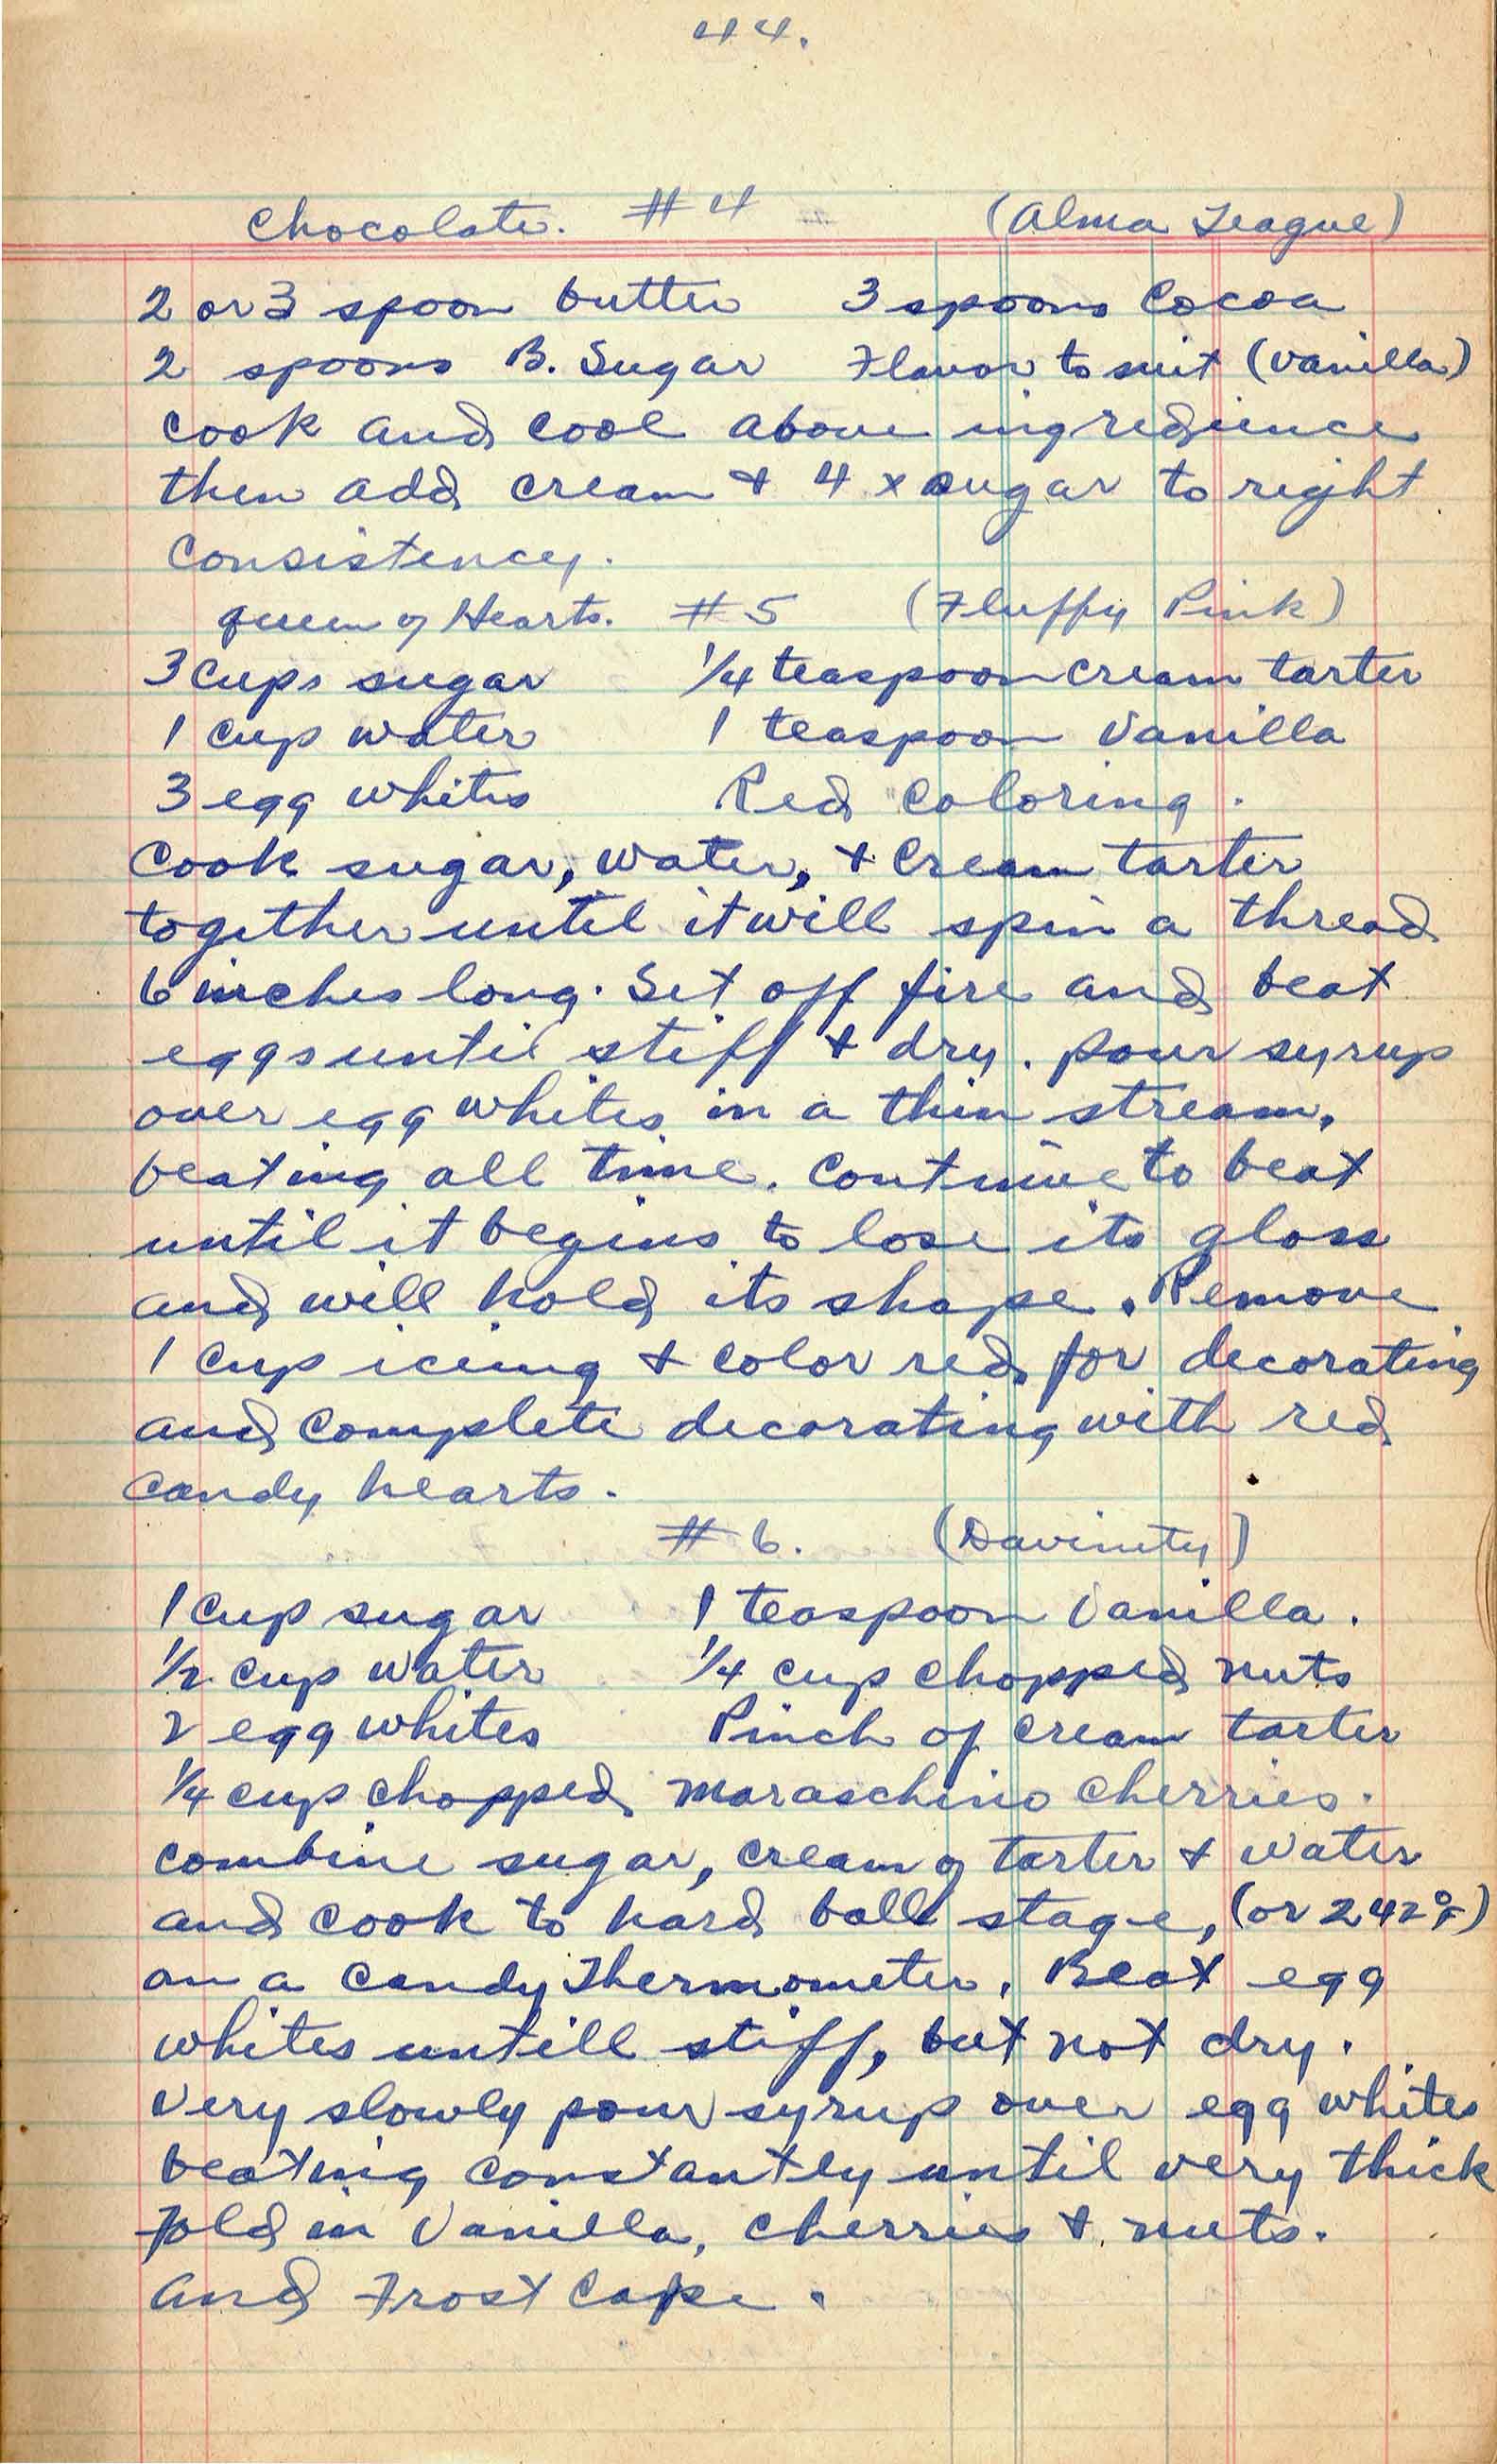 44.
Chocolate. #4 (Alma Teague)
2 or 3 spoon butter 3 spoons Cocoa
2 spoons B. Sugar Flavor to suit (Vanilla)
Cook and cool above ingredience
then add cream + 4 x sugar to right
Consistency.
Queen of Hearts. #5 (Fluffy Pink)
3 cups sugar 1/4 teaspoon cream tarter
1 cup water 1 teaspoon Vanilla
3 egg whites Red Coloring.
Cook sugar, water, + Cream tarter
together until it will spin a thread
6 inches long. Set off fire and beat
eggs until stiff + dry. pour syrup
over egg whites in a thin stream,
beating all time. Continue to beat
until it begins to lose its gloss
and will hold its shape. Remove
1 cup icing + color red for decorating
and complete decorating with red
candy hearts.
#6. (Davinity)
1 cup sugar 1 teaspoon Vanilla.
1/2 cup water 1/4 cup chopped nuts
2 egg whites Pinch of cream tarter
1/4 cup chopped maraschino cherries.
combine sugar, cream of tarter + water
and cook to hard ball stage, (or 242°F)
on a candy Thermometer. Beat egg
whites untill stiff, but not dry.
Very slowly pour syrup over egg whites
beating constantly until very thick
Fold in Vanilla, cherries + nuts.
and Frost Cake.